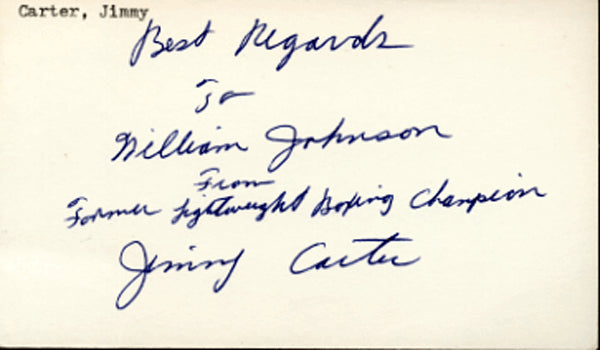 Carter, Jimmy
Best Regards
To
William Johnson
From
Former Lightweight Boxing Champion
Jimmy Carter